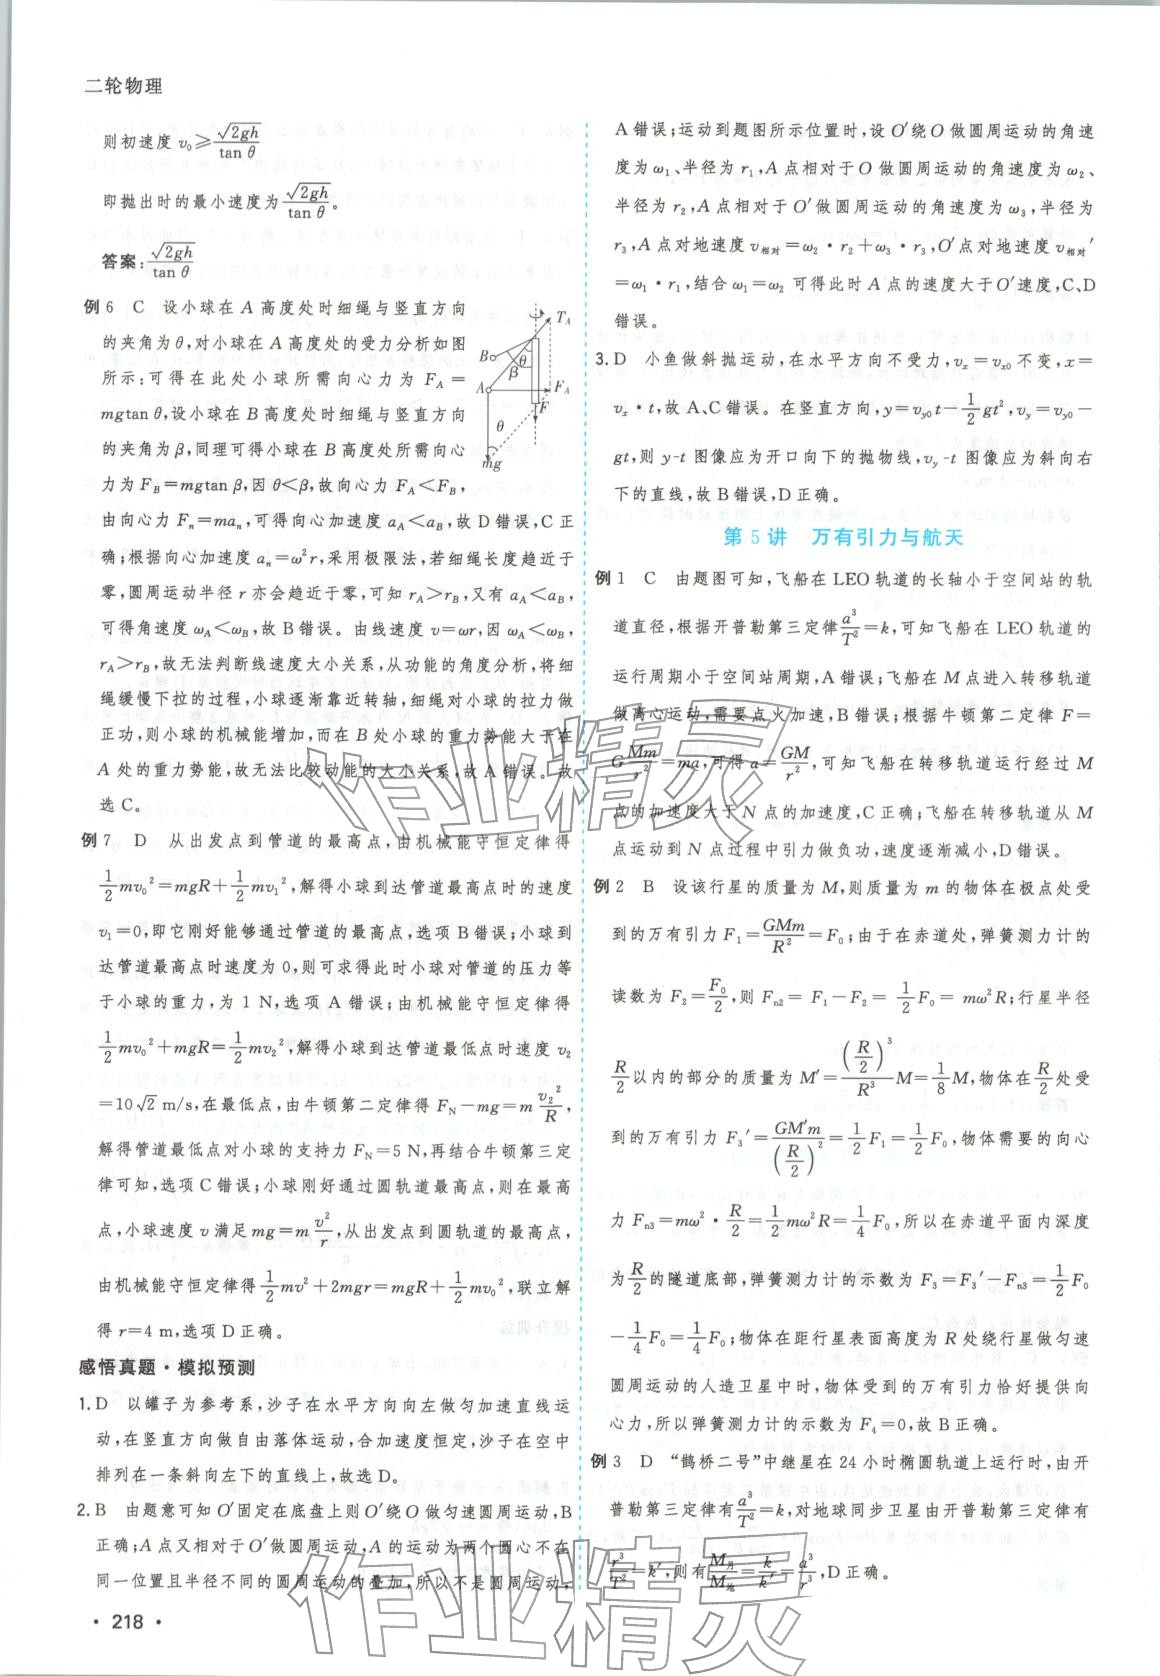 二轮物理
则初速度 v₀≥√(2gh)/tan θ
即抛出时的最小速度为√(2gh)/tan θ。
答案:√(2gh)/tan θ
例 6 C 设小球在 A 高度处时细绳与竖直方向
的夹角为θ,对小球在 A 高度处的受力分析如图
所示:可得在此处小球所需向心力为 F_A=
mgtan θ,设小球在 B 高度处时细绳与竖直方向
的夹角为β,同理可得小球在 B 高度处所需向心
力为 F_B=mgtan β,因 θ<β,故向心力 F_A<F_B,
由向心力 F_n=ma_n,可得向心加速度 a_A<a_B,故 D 错误,C 正
确;根据向心加速度 a_n=ω²r,采用极限法,若细绳长度趋近于
零,圆周运动半径 r 亦会趋近于零,可知 r_A>r_B,又有 a_A<a_B,
可得角速度 ω_A<ω_B,故 B 错误。由线速度 v=ωr,因 ω_A<ω_B,
r_A>r_B,故无法判断线速度大小关系,从功能的角度分析,将细
绳缓慢下拉的过程,小球逐渐靠近转轴,细绳对小球的拉力做
正功,则小球的机械能增加,而在 B 处小球的重力势能大于在
A 处的重力势能,故无法比较动能的大小关系,故 A 错误。故
选 C。
T_A
B
θ
β
A
F_A
F
θ
mg
例 7 D 从出发点到管道的最高点,由机械能守恒定律得
1/2 mv₀²=mgR+1/2 mv₁²,解得小球到达管道最高点时的速度
v₁=0,即它刚好能够通过管道的最高点,选项 B 错误;小球到
达管道最高点时速度为 0,则可求得此时小球对管道的压力等
于小球的重力,为 1 N,选项 A 错误;由机械能守恒定律得
1/2 mv₀²+mgR=1/2 mv₂²,解得小球到达管道最低点时速度 v₂
=10√2 m/s,在最低点,由牛顿第二定律得 F_N-mg=m v₂²/R,
解得管道最低点对小球的支持力 F_N=5 N,再结合牛顿第三定
律可知,选项 C 错误;小球刚好通过圆轨道最高点,则在最高
点,小球速度 v 满足 mg=m v²/r,从出发点到圆轨道的最高点,
由机械能守恒定律得 1/2 mv²+2mgr=mgR+1/2 mv₀²,联立解
得 r=4 m,选项 D 正确。
感悟真题·模拟预测
1. D 以罐子为参考系,沙子在水平方向向左做匀加速直线运
动,在竖直方向做自由落体运动,合加速度恒定,沙子在空中
排列在一条斜向左下的直线上,故选 D。
2. B 由题意可知 O′固定在底盘上则 O′绕 O 做匀速圆周运动,B
正确;A 点又相对于 O′做圆周运动,A 的运动为两个圆心不在
同一位置且半径不同的圆周运动的叠加,所以不是圆周运动,
· 218 ·
A 错误;运动到题图所示位置时,设 O′绕 O 做圆周运动的角速
度为 ω₁、半径为 r₁,A 点相对于 O 做圆周运动的角速度为 ω₂、
半径为 r₂,A 点相对于 O′做圆周运动的角速度为 ω₃,半径为
r₃,A 点对地速度 v相对=ω₂·r₂+ω₃·r₃,O′点对地速度 v相对′
=ω₁·r₁,结合 ω₁=ω₂ 可得此时 A 点的速度大于 O′速度,C、D
错误。
3. D 小鱼做斜抛运动,在水平方向不受力,v_x=v_x0 不变,x=
v_x·t,故 A、C 错误。在竖直方向,y=v_y0 t-1/2 gt²,v_y=v_y0-
gt,则 y-t 图像应为开口向下的抛物线,v_y-t 图像应为斜向右
下的直线,故 B 错误,D 正确。
第 5 讲 万有引力与航天
例 1 C 由题图可知,飞船在 LEO 轨道的长轴小于空间站的轨
道直径,根据开普勒第三定律 a³/T²=k,可知飞船在 LEO 轨道的
运行周期小于空间站周期,A 错误;飞船在 M 点进入转移轨道
做离心运动,需要点火加速,B 错误;根据牛顿第二定律 F=
G Mm/r²=ma,可得 a=GM/r²,可知飞船在转移轨道运行经过 M
点的加速度大于 N 点的加速度,C 正确;飞船在转移轨道从 M
点运动到 N 点过程中引力做负功,速度逐渐减小,D 错误。
例 2 B 设该行星的质量为 M,则质量为 m 的物体在极点处受
到的万有引力 F₁=GMm/R²=F₀;由于在赤道处,弹簧测力计的
读数为 F₂=F₀/2,则 F_n2=F₁-F₂=1/2 F₀=mω²R;行星半径
R/2 以内的部分的质量为 M′=(R/2)³/R³ M=1/8 M,物体在 R/2 处受
到的万有引力 F₃′=GM′m/(R/2)²=1/2 F₁=1/2 F₀,物体需要的向心
力 F_n3=mω²·R/2=1/2 mω²R=1/4 F₀,所以在赤道平面内深度
为 R/2 的隧道底部,弹簧测力计的示数为 F₃=F₃′-F_n3=1/2 F₀
-1/4 F₀=1/4 F₀;物体在距行星表面高度为 R 处绕行星做匀速
圆周运动的人造卫星中时,物体受到的万有引力恰好提供向
心力,所以弹簧测力计的示数为 F₄=0,故 B 正确。
例 3 D “鹊桥二号”中继星在 24 小时椭圆轨道上运行时,由开
普勒第三定律有 a³/T²=k,对地球同步卫星由开普勒第三定律有
r³/T²=k′,则有 M月/M地=k/k′=a³/r³,D 正确。
作业精灵
作业精灵